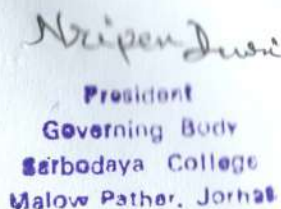 Nripen Dwi
President
Governing Body
Sarbodaya College
Malow Pather, Jorhat